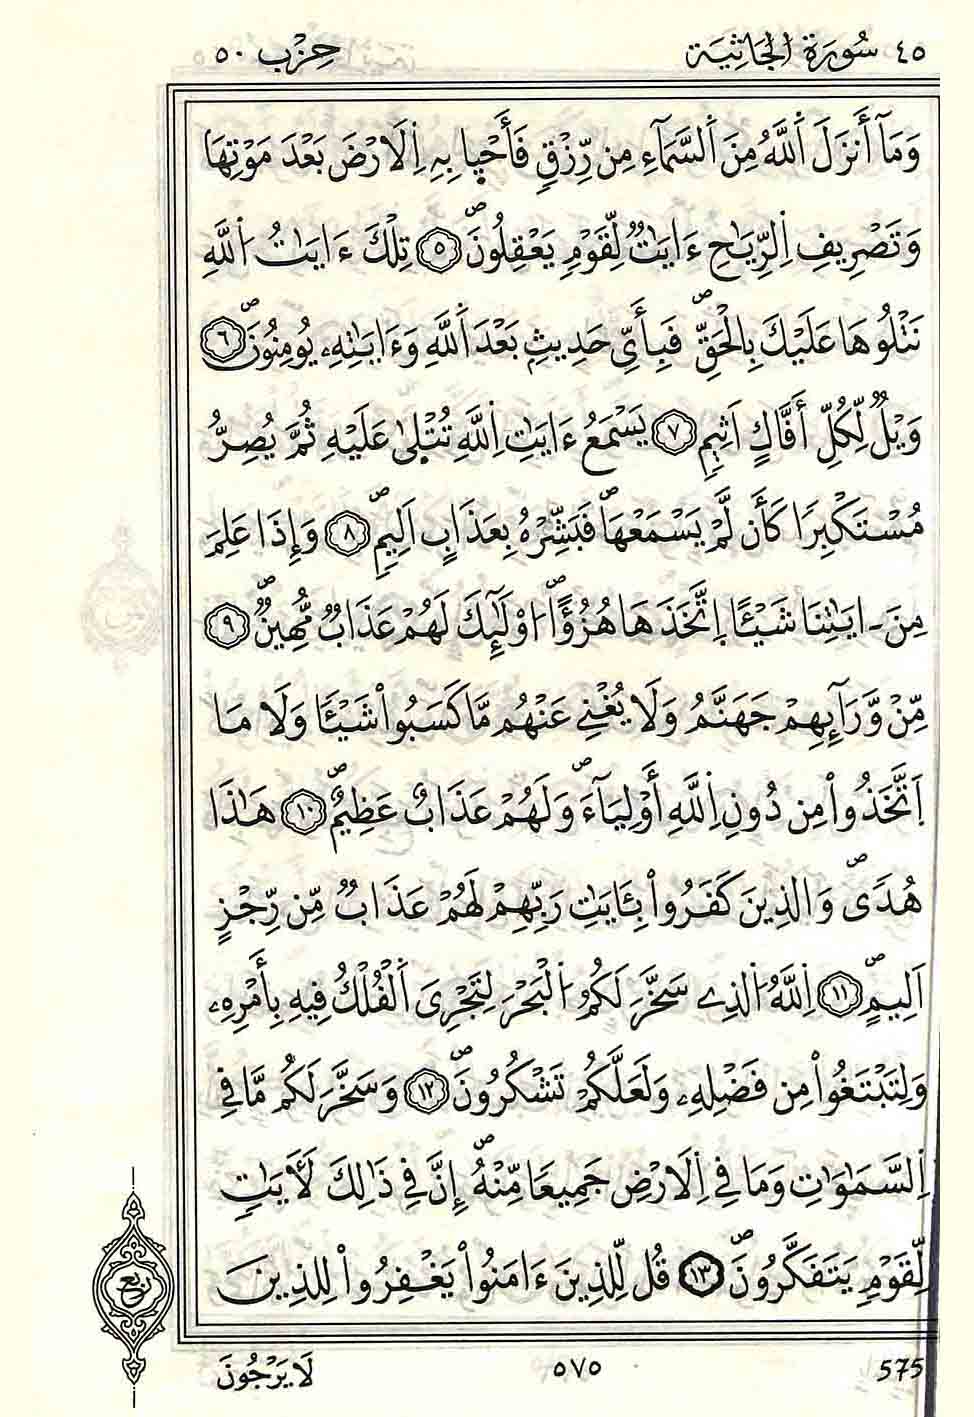 ٤٥ سُورَةُ الجَاثِيَة حِزْب ٥٠
وَمَآ أَنزَلَ اَ۬للَّهُ مِنَ اَ۬لسَّمَآءِ مِن رِّزْقٖ فَأَحْي۪ا بِهِ اِ۬لَارْضَ بَعْدَ مَوْتِهَا
وَتَصْرِيفِ اِ۬لرِّيَٰحِ ءَايَٰتٞ لِّقَوْمٖ يَعْقِلُونَۖ ٥ تِلْكَ ءَايَٰتُ اُ۬للَّهِ
نَتْلُوهَا عَلَيْكَ بِالْحَقِّۖ فَبِأَيِّ حَدِيثِۢ بَعْدَ اَ۬للَّهِ وَءَايَٰتِهِۦ يُومِنُونَۖ ٦
وَيْلٞ لِّكُلِّ أَفَّاكٍ اَثِيمٖ ٧ يَسْمَعُ ءَايَٰتِ اِ۬للَّهِ تُتْل۪يٰ عَلَيْهِ ثُمَّ يُصِرُّ
مُسْتَكْبِراٗ كَأَن لَّمْ يَسْمَعْهَاۖ فَبَشِّرْهُ بِعَذَابٍ اَلِيمٖۖ ٨ وَإِذَا عَلِمَ
مِنَ اٰيَٰتِنَا شَيْـٔاً اِ۪تَّخَذَهَا هُزُؤاًۖ ا۟وْلَٰٓئِكَ لَهُمْ عَذَابٞ مُّهِينٞۖ ٩
مِّنْ وَّرَآئِهِمْ جَهَنَّمُ وَلَا يُغْنِے عَنْهُم مَّا كَسَبُواْ شَيْـٔاٗ وَلَا مَا
اَ۪تَّخَذُواْ مِن دُونِ اِ۬للَّهِ أَوْلِيَآءَۖ وَلَهُمْ عَذَابٌ عَظِيمٌۖ ١٠ هَٰذَا
هُدىٗۖ وَالذِينَ كَفَرُواْ بِـَٔايَٰتِ رَبِّهِمْ لَهُمْ عَذَابٞ مِّن رِّجْزٍ
اَلِيمٍۖ ١١ اِ۬للَّهُ اُ۬لذِے سَخَّرَ لَكُمُ اُ۬لْبَحْرَ لِتَجْرِيَ اَ۬لْفُلْكُ فِيهِ بِأَمْرِهِۦ
وَلِتَبْتَغُواْ مِن فَضْلِهِۦ وَلَعَلَّكُمْ تَشْكُرُونَۖ ١٢ وَسَخَّرَ لَكُم مَّا فِے
اِ۬لسَّمَٰوَٰتِ وَمَا فِے اِ۬لَارْضِ جَمِيعاٗ مِّنْهُۖ إِنَّ فِے ذَٰلِكَ لَأٓيَٰتٖ
لِّقَوْمٖ يَتَفَكَّرُونَۖ ١٣ قُل لِّلذِينَ ءَامَنُواْ يَغْفِرُواْ لِلذِينَ
ربع
لَا يَرْجُونَ ٥٧٥ 575